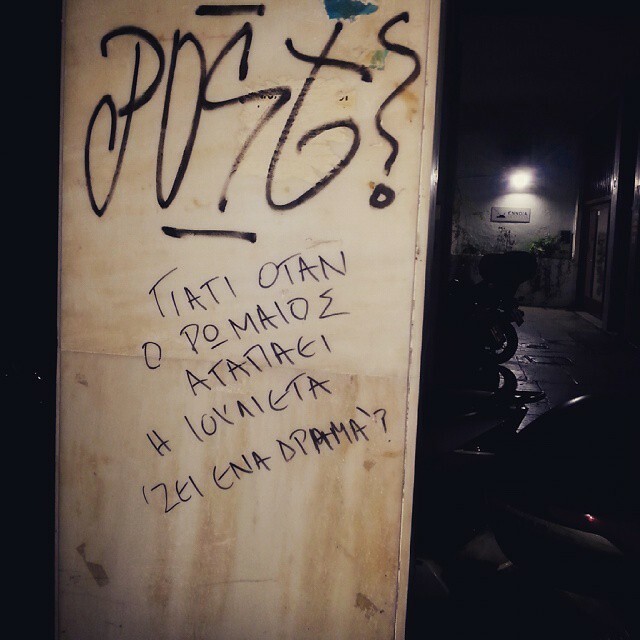 ΓΙΑΤΙ ΟΤΑΝ
Ο ΡΩΜΑΙΟΣ
ΑΓΑΠΑΕΙ
Η ΙΟΥΛΙΕΤΑ
'ΖΕΙ ΕΝΑ ΔΡΑΜΑ'?
ΕΝΝΟΙΑ